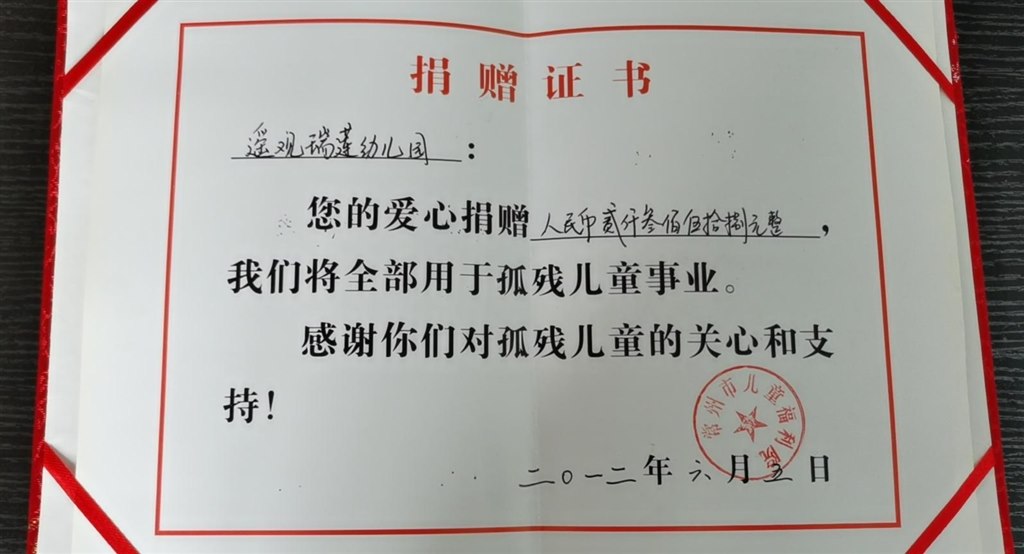 捐赠证书
遥观瑞莲幼儿园：
您的爱心捐赠人民币贰仟叁佰伍拾捌元整，
我们将全部用于孤残儿童事业。
感谢你们对孤残儿童的关心和支
持！
常州市儿童福利院
二〇一二年六月五日